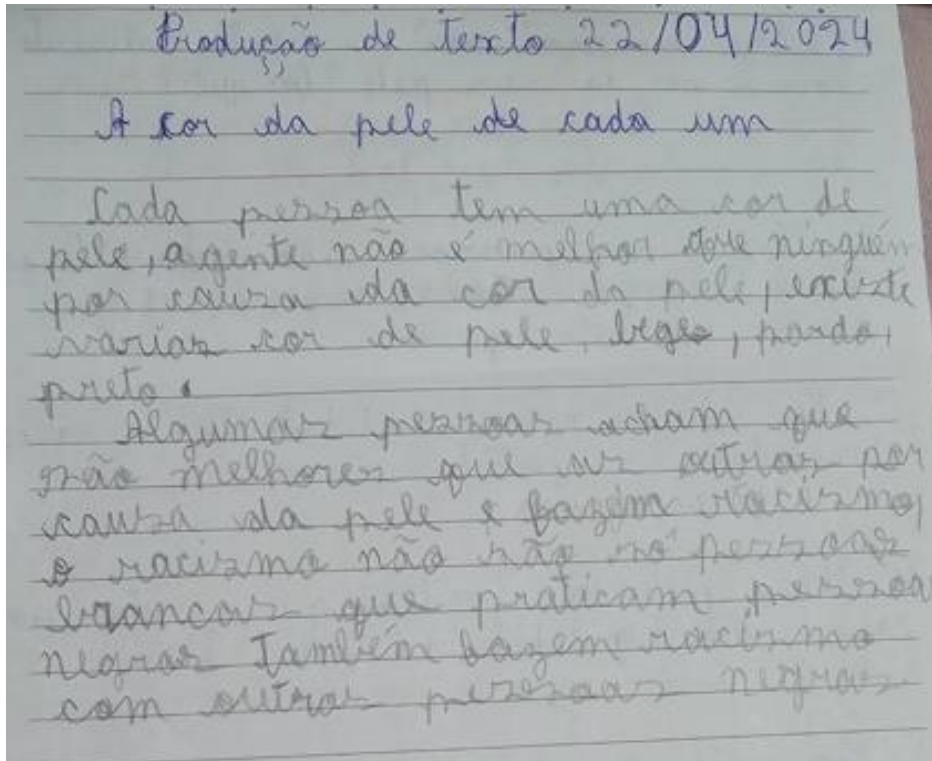 Produção de texto 22/04/2024
A cor da pele de cada um
Cada pessoa tem uma cor de
pele, agente não é melhor que ninguém
por causa da cor da pele, existe
varias cor de pele, bege, pardo,
preto.
Algumas pessoas acham que
são melhores que as outras por
causa da pele e fazem racismo,
o racismo não são só pessoas
brancas que praticam pessoa
negras também fazem racismo
com outras pessoas negras